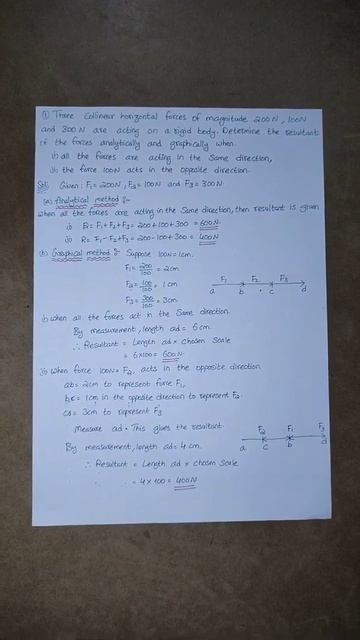 ① Three Collinear horizontal forces of magnitude 200N, 100N
and 300N are acting on a rigid body. Determine the resultant
of the forces analytically and graphically when.
i) all the forces are acting in the Same direction,
ii) the force 100N acts in the opposite direction.
Sol: Given: F1 = 200N, F2 = 100N and F3 = 300N.
(a) Analytical method :-
when all the forces are acting in the Same direction, then resultant is given
i) R = F1 + F2 + F3 = 200 + 100 + 300 = 600N.
ii) R = F1 - F2 + F3 = 200 - 100 + 300 = 400N
(b) Graphical method :- Suppose 100N = 1cm.
F1 = 200/100 = 2cm
F2 = 100/100 = 1cm
F3 = 300/100 = 3cm.
F1 F2 F3
a b c d
i) when all the forces act in the Same direction.
By measurement, length ad = 6cm.
∴ Resultant = Length ad × chosen Scale
= 6×100 = 600N.
ii) when force 100N = F2, acts in the opposite direction
ab = 2cm to represent force F1,
bc = 1cm in the opposite direction to represent F2.
cd = 3cm to represent F3
Measure ad. This gives the resultant.
By measurement, length ad = 4cm.
F2 F1 F3
a c b d
∴ Resultant = Length ad × chosen Scale
= 4 × 100 = 400N